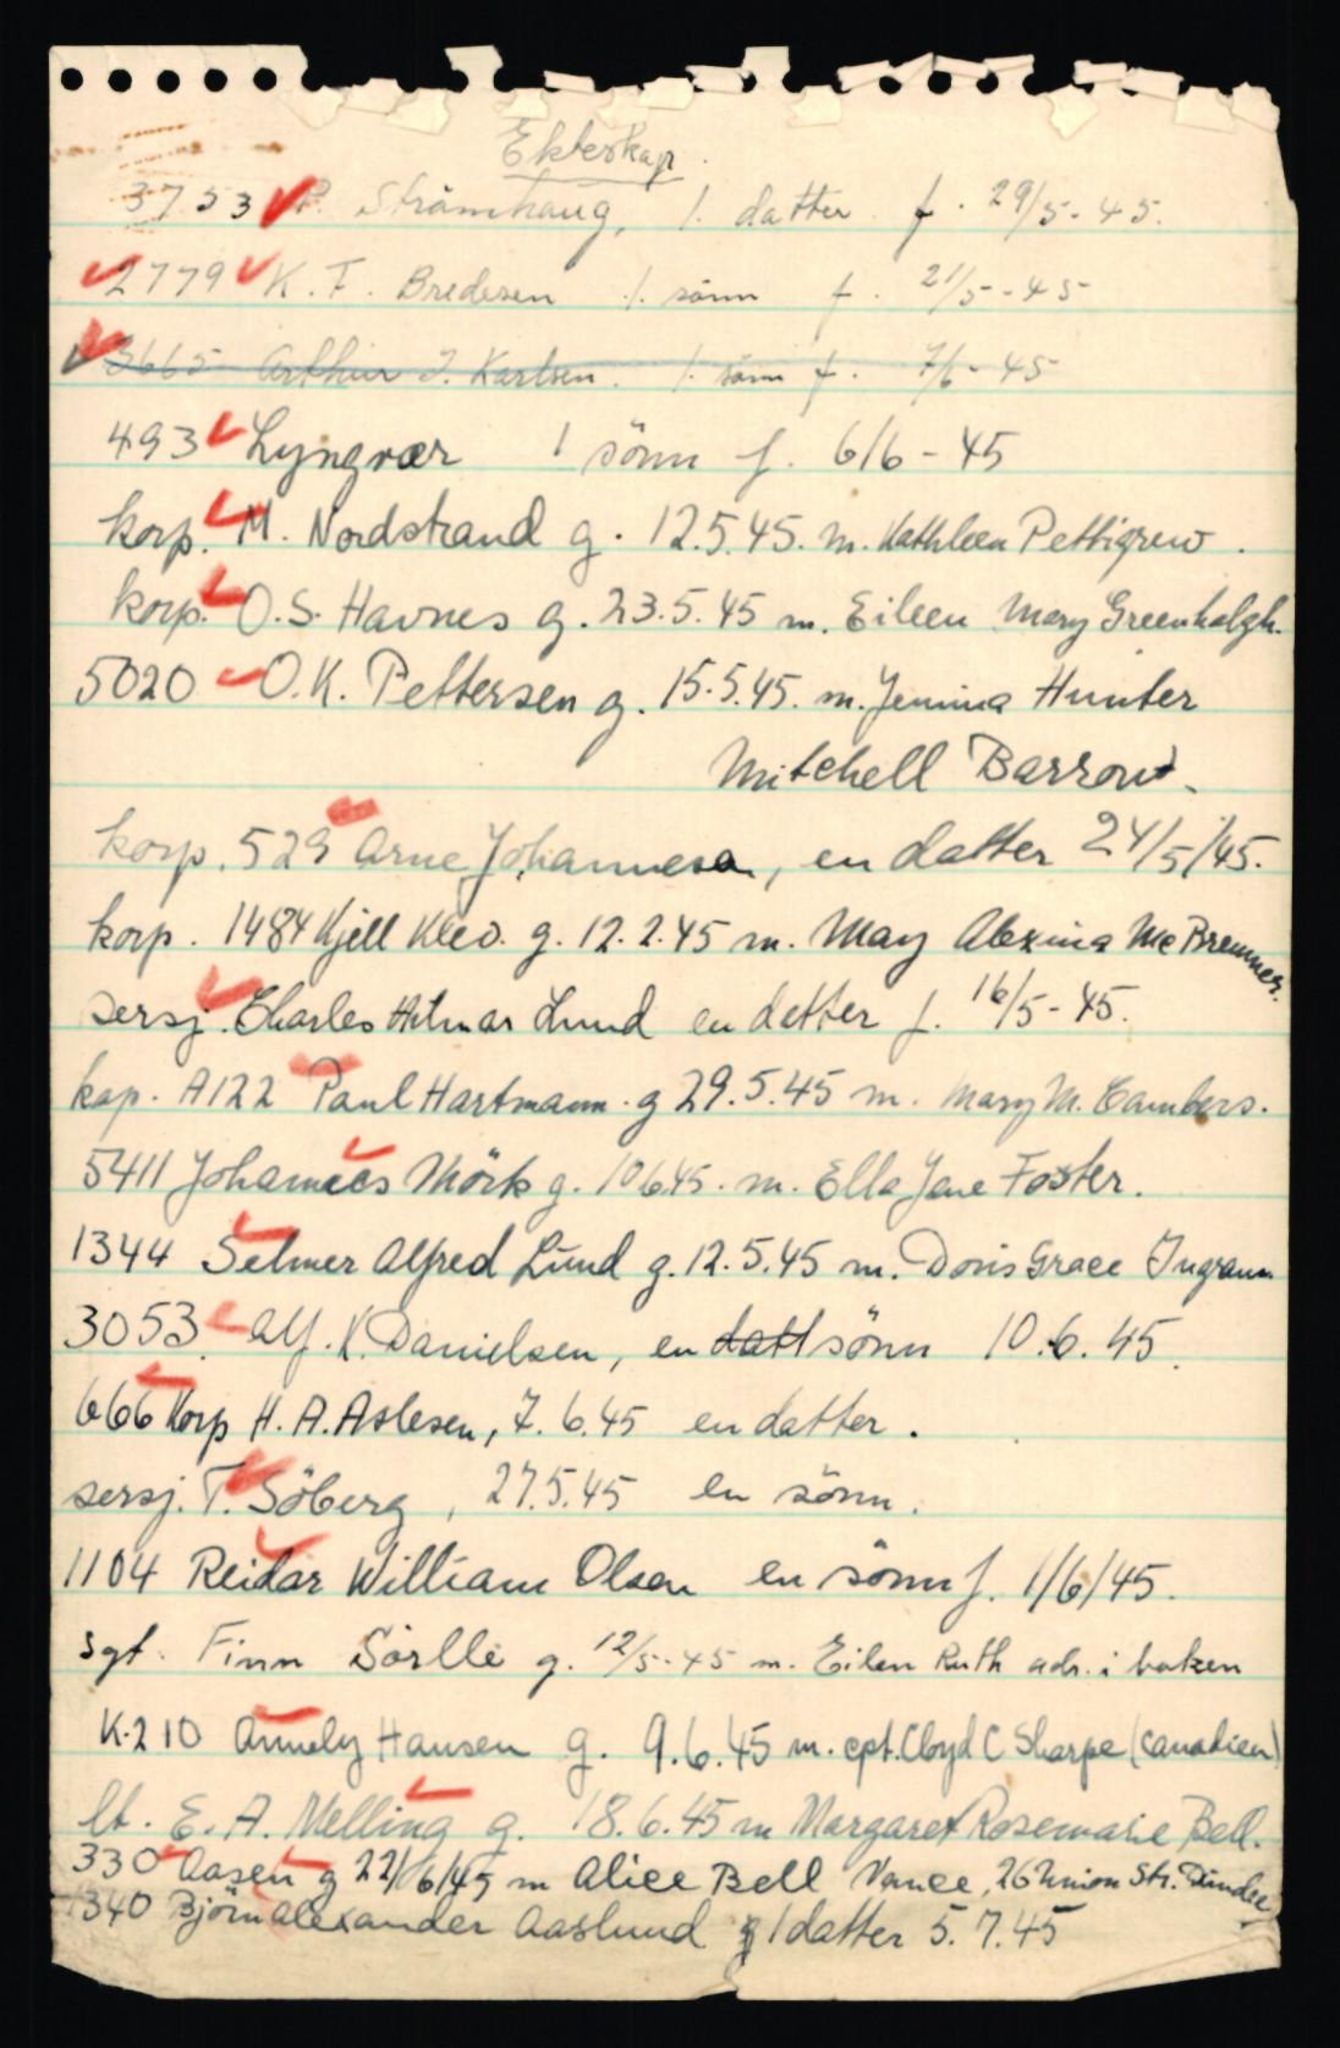 Ekteskap.
3753 P. Strømhaug, 1. datter f. 29/5-45.
2779 K. F. Bredesen 1. sønn f. 21/5-45
3665 Arthur J. Karlsen. 1. sønn f. 7/6-45
493 Lyngvær 1 sönn f. 6/6-45
korp. M. Nordstrand g. 12.5.45. m. Kathleen Pettigrew.
korp. O.S. Havnes g. 23.5.45 m. Eileen Mary Greenhalgh.
5020 O.K. Pettersen g. 15.5.45. m. Jemima Hunter
Mitchell Barron.
korp. 529 Arne Johannesen, en datter 24/5/45.
korp. 1484 Kjell Klev. g. 12.2.45 m. May Alexina McBremner.
sersj. Charles Hilmar Lund en datter f. 16/5-45.
kap. A122 Paul Hartmann. g 29.5.45 m. Mary M. Cambers.
5411 Johannes Mörk g. 10.6.45. m. Ella Jane Foster.
1344 Selmer Alfred Lund g. 12.5.45 m. Doris Grace Ingram
3053. Alf. K. Danielsen, en datt sönn 10.6.45.
666 Korp H. A. Aslesen, 7.6.45 en datter.
sersj. T. Söberg, 27.5.45 en sönn.
1104 Reidar William Olsen en sönn f. 1/6/45.
sgt. Finn Sörlle g. 12/5-45 m. Eilen Ruth adr. i boken
K.210 Annely Hansen g. 9.6.45 m. cpt. Cloyd C Sharpe (Canadien)
lt. E. A. Melling g. 18.6.45 m Margaret Rosemarie Bell.
330 Aasen g 22/6/45 m Alice Bell Vance, 26 Union Str. Dundee
1340 Björn Alexander Aaslund g 1 datter 5.7.45